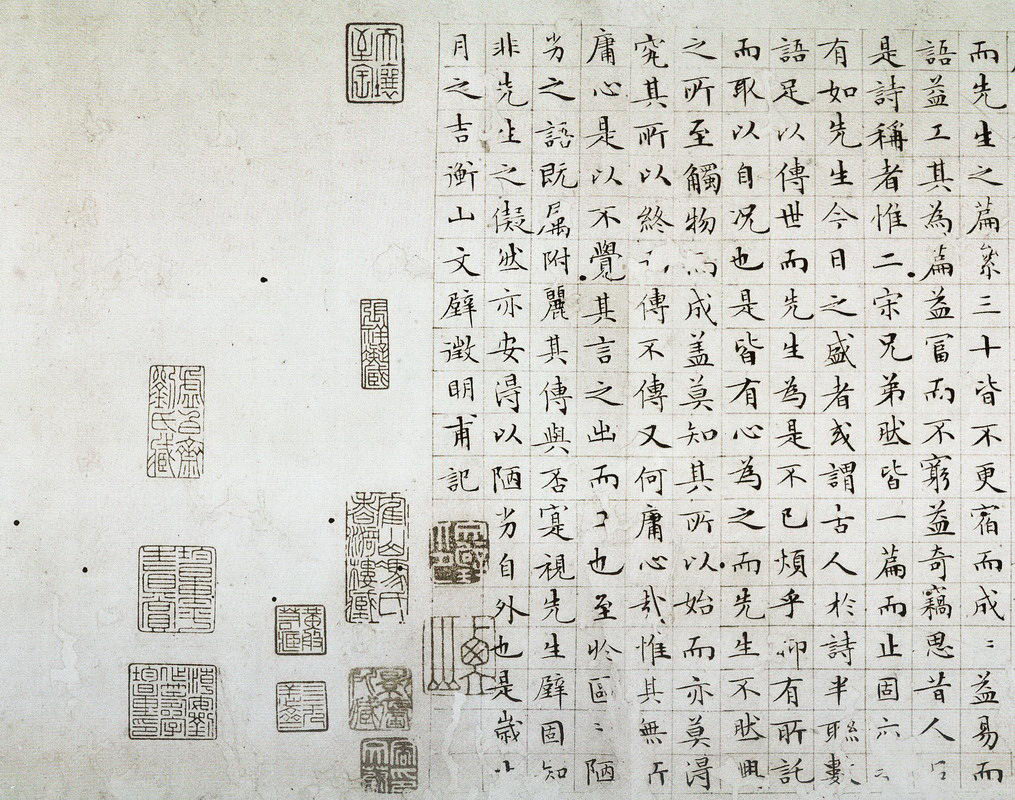 而先生之篇絫三十皆不更宿而成〻益易而
語益工其為篇益富而不窮益奇竊思昔人以
是詩稱者惟二宋兄弟然皆一篇而止固
有如先生今日之盛者或謂古人於詩半聯數
語足以傳世而先生為是不已煩乎抑有所託
而取以自况也是皆有心為之而先生不然興
之所至觸物而成盖莫知其所以始而亦莫得
究其所以終傳不傳又何庸心哉惟其無所
庸心是以不覺其言之出而工也至於區〻陋
劣之語既屬附麗其傳與否寔視先生壁固知
非先生之儗然亦安得以陋劣自外也是歲十
月之吉衡山文壁徵明甫記
虛白齋劉氏藏